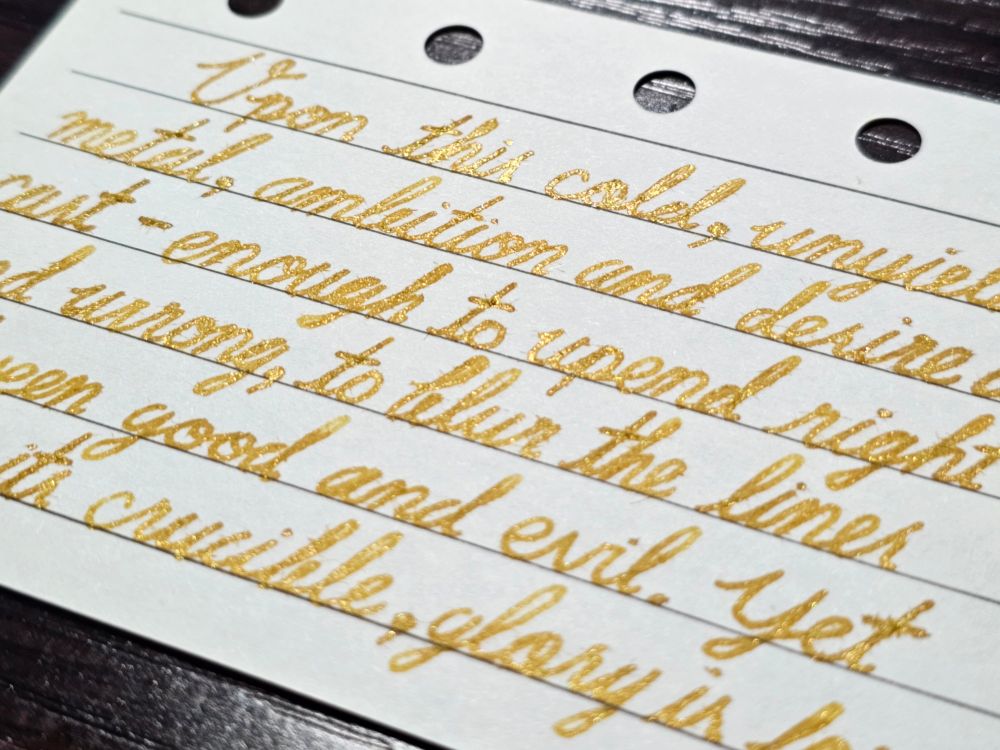 Upon this cold, unyiel
metal, ambition and desire a
cast - enough to upend right
nd wrong, to blur the lines
ween good and evil. Yet
its crucible, glory is